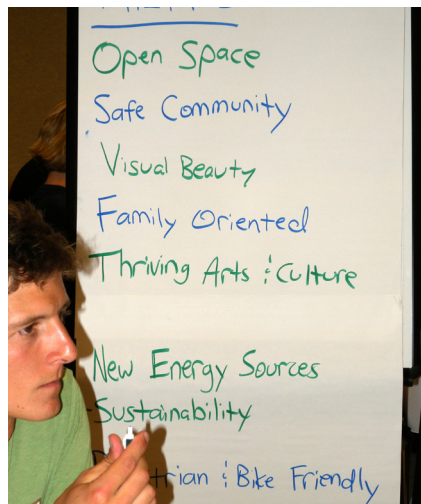 Open Space
Safe Community
Visual Beauty
Family Oriented
Thriving Arts & Culture
New Energy Sources
Sustainability
& Bike Friendly